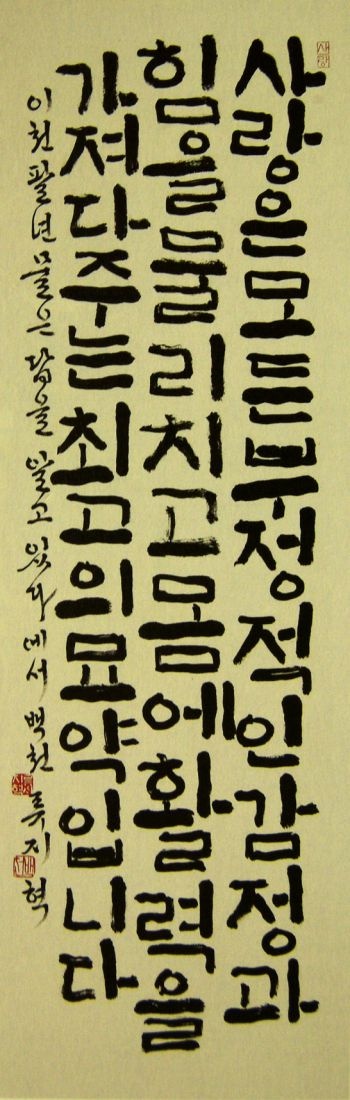 사랑
사랑은모든부정적인감정과
힘을물리치고몸에활력을
가져다주는최고의묘약입니다
이천팔년 물은 답을 알고 있다에서 백천 류지혁